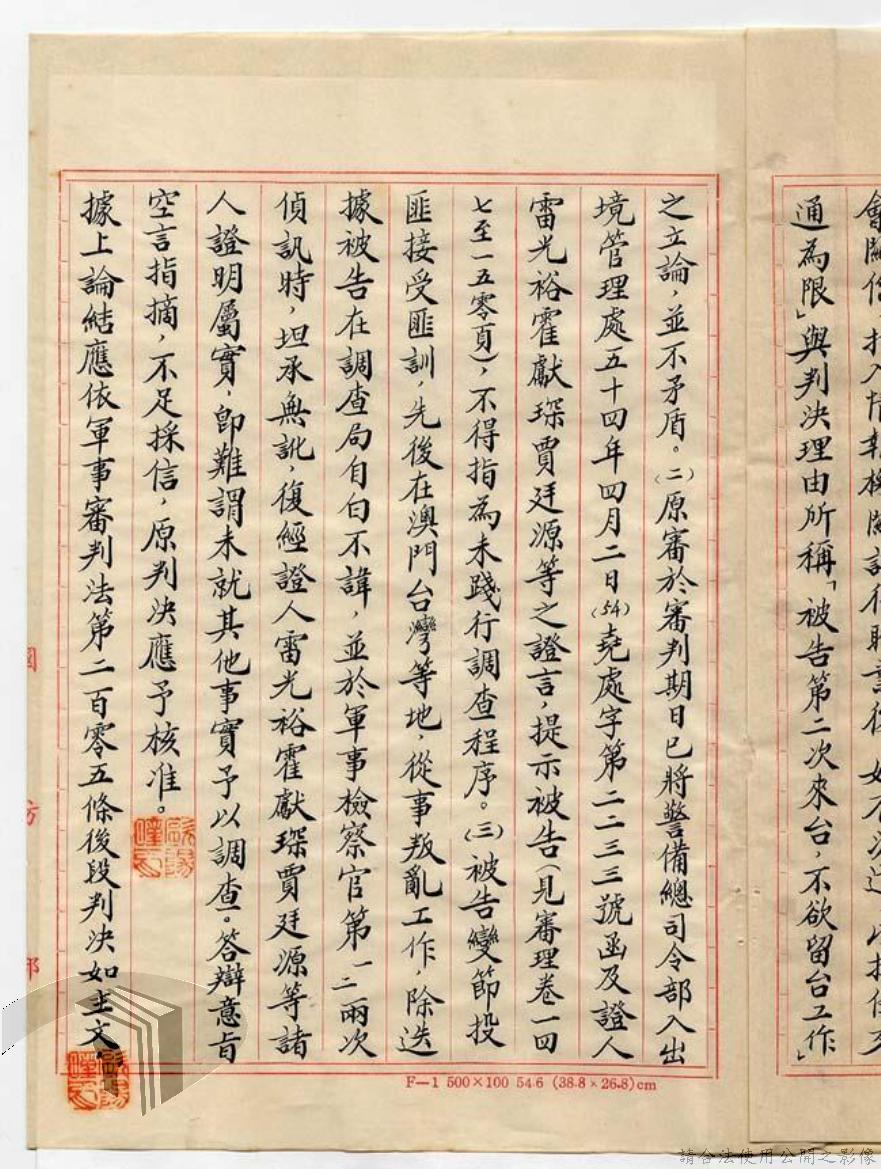 通為限」與判決理由所稱「被告第二次來台，不欲留台工作」
之立論，並不矛盾。㈡原審於審判期日已將警備總司令部入出
境管理處五十四年四月二日(54)堯處字第二二三三號函及證人
雷光裕霍獻琛賈廷源等之證言，提示被告(見審理卷一四
七至一五零頁)，不得指為未踐行調查程序。㈢被告變節投
匪接受匪訓，先後在澳門台灣等地，從事叛亂工作，除迭
據被告在調查局自白不諱，並於軍事檢察官第一二兩次
偵訊時，坦承無訛，復經證人雷光裕霍獻琛賈廷源等諸
人證明屬實，即難謂未就其他事實予以調查。答辯意旨
空言指摘，不足採信，原判決應予核准。
據上論結應依軍事審判法第二百零五條後段判決如主文
國防部
F—1 500×100 54.6 (38.8×26.8)cm
請合法使用公開之影像